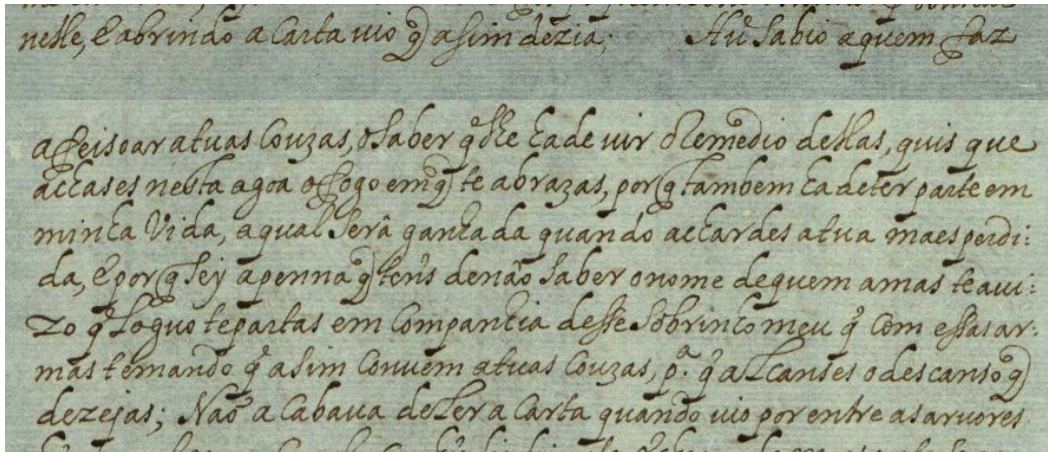 nesse, e abrindo a Carta uio q̃ asim dezia; Hũ Sabio aquem faz
afeisoar atuas Couzas, o saber q̃ lhe ha de vir o Remedio dellas, quis que
achases nesta agoa o fogo em q̃ te abrazas, por q̃ tambem ha de ter parte em
minha Vida, aqual Serâ ganhada quando achardes atua mais perdi:
da, e por q̃ sey apenna q̃ tens denão saber o nome dequem amas te aui:
zo q̃ Loguo te partas em Companhia desse Sobrinho meu q̃ com essas ar:
mas te mando q̃ asim Conuem atuas Couzas, p.ª q̃ alcanses o descanso q̃
dezejas; Não aCabaua deLer a Carta quando uio por entre as aruores